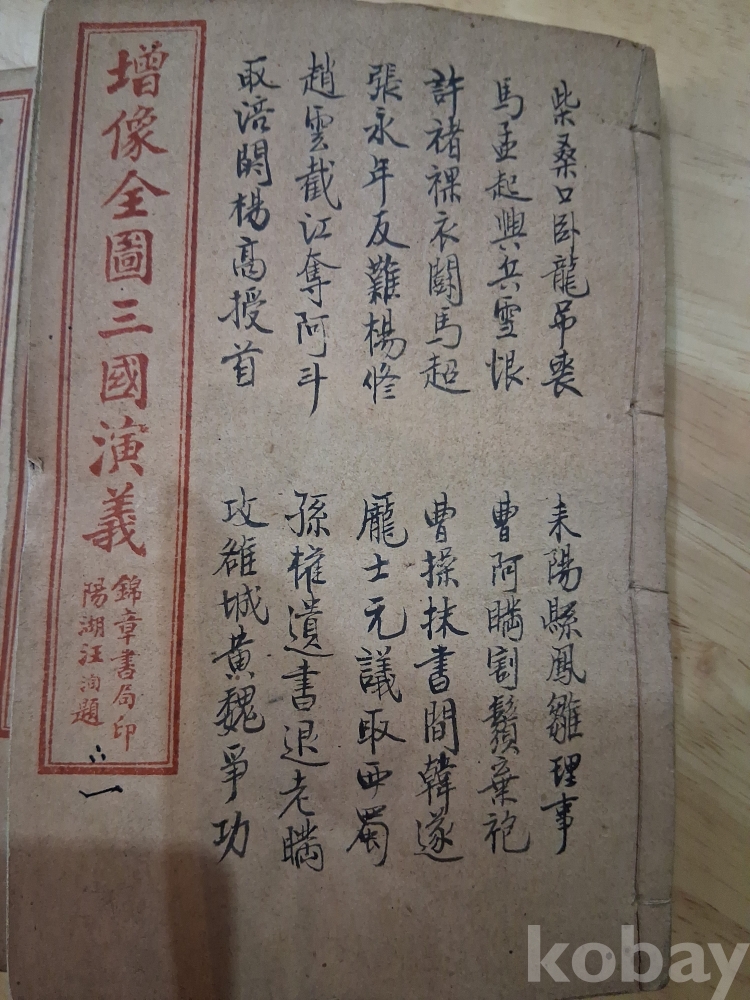 柴桑口卧龍吊喪 耒陽縣鳳雛理事
馬孟起興兵雪恨 曹阿瞞割鬚棄袍
許褚裸衣闘馬超 曹操抹書間韓遂
張永年反難楊修 龐士元議取西蜀
趙雲截江奪阿斗 孫權遺書退老瞞
取涪関楊高授首 攻雒城黄魏爭功
增像全圖三國演義
錦章書局印
陽湖汪洵題
kobay